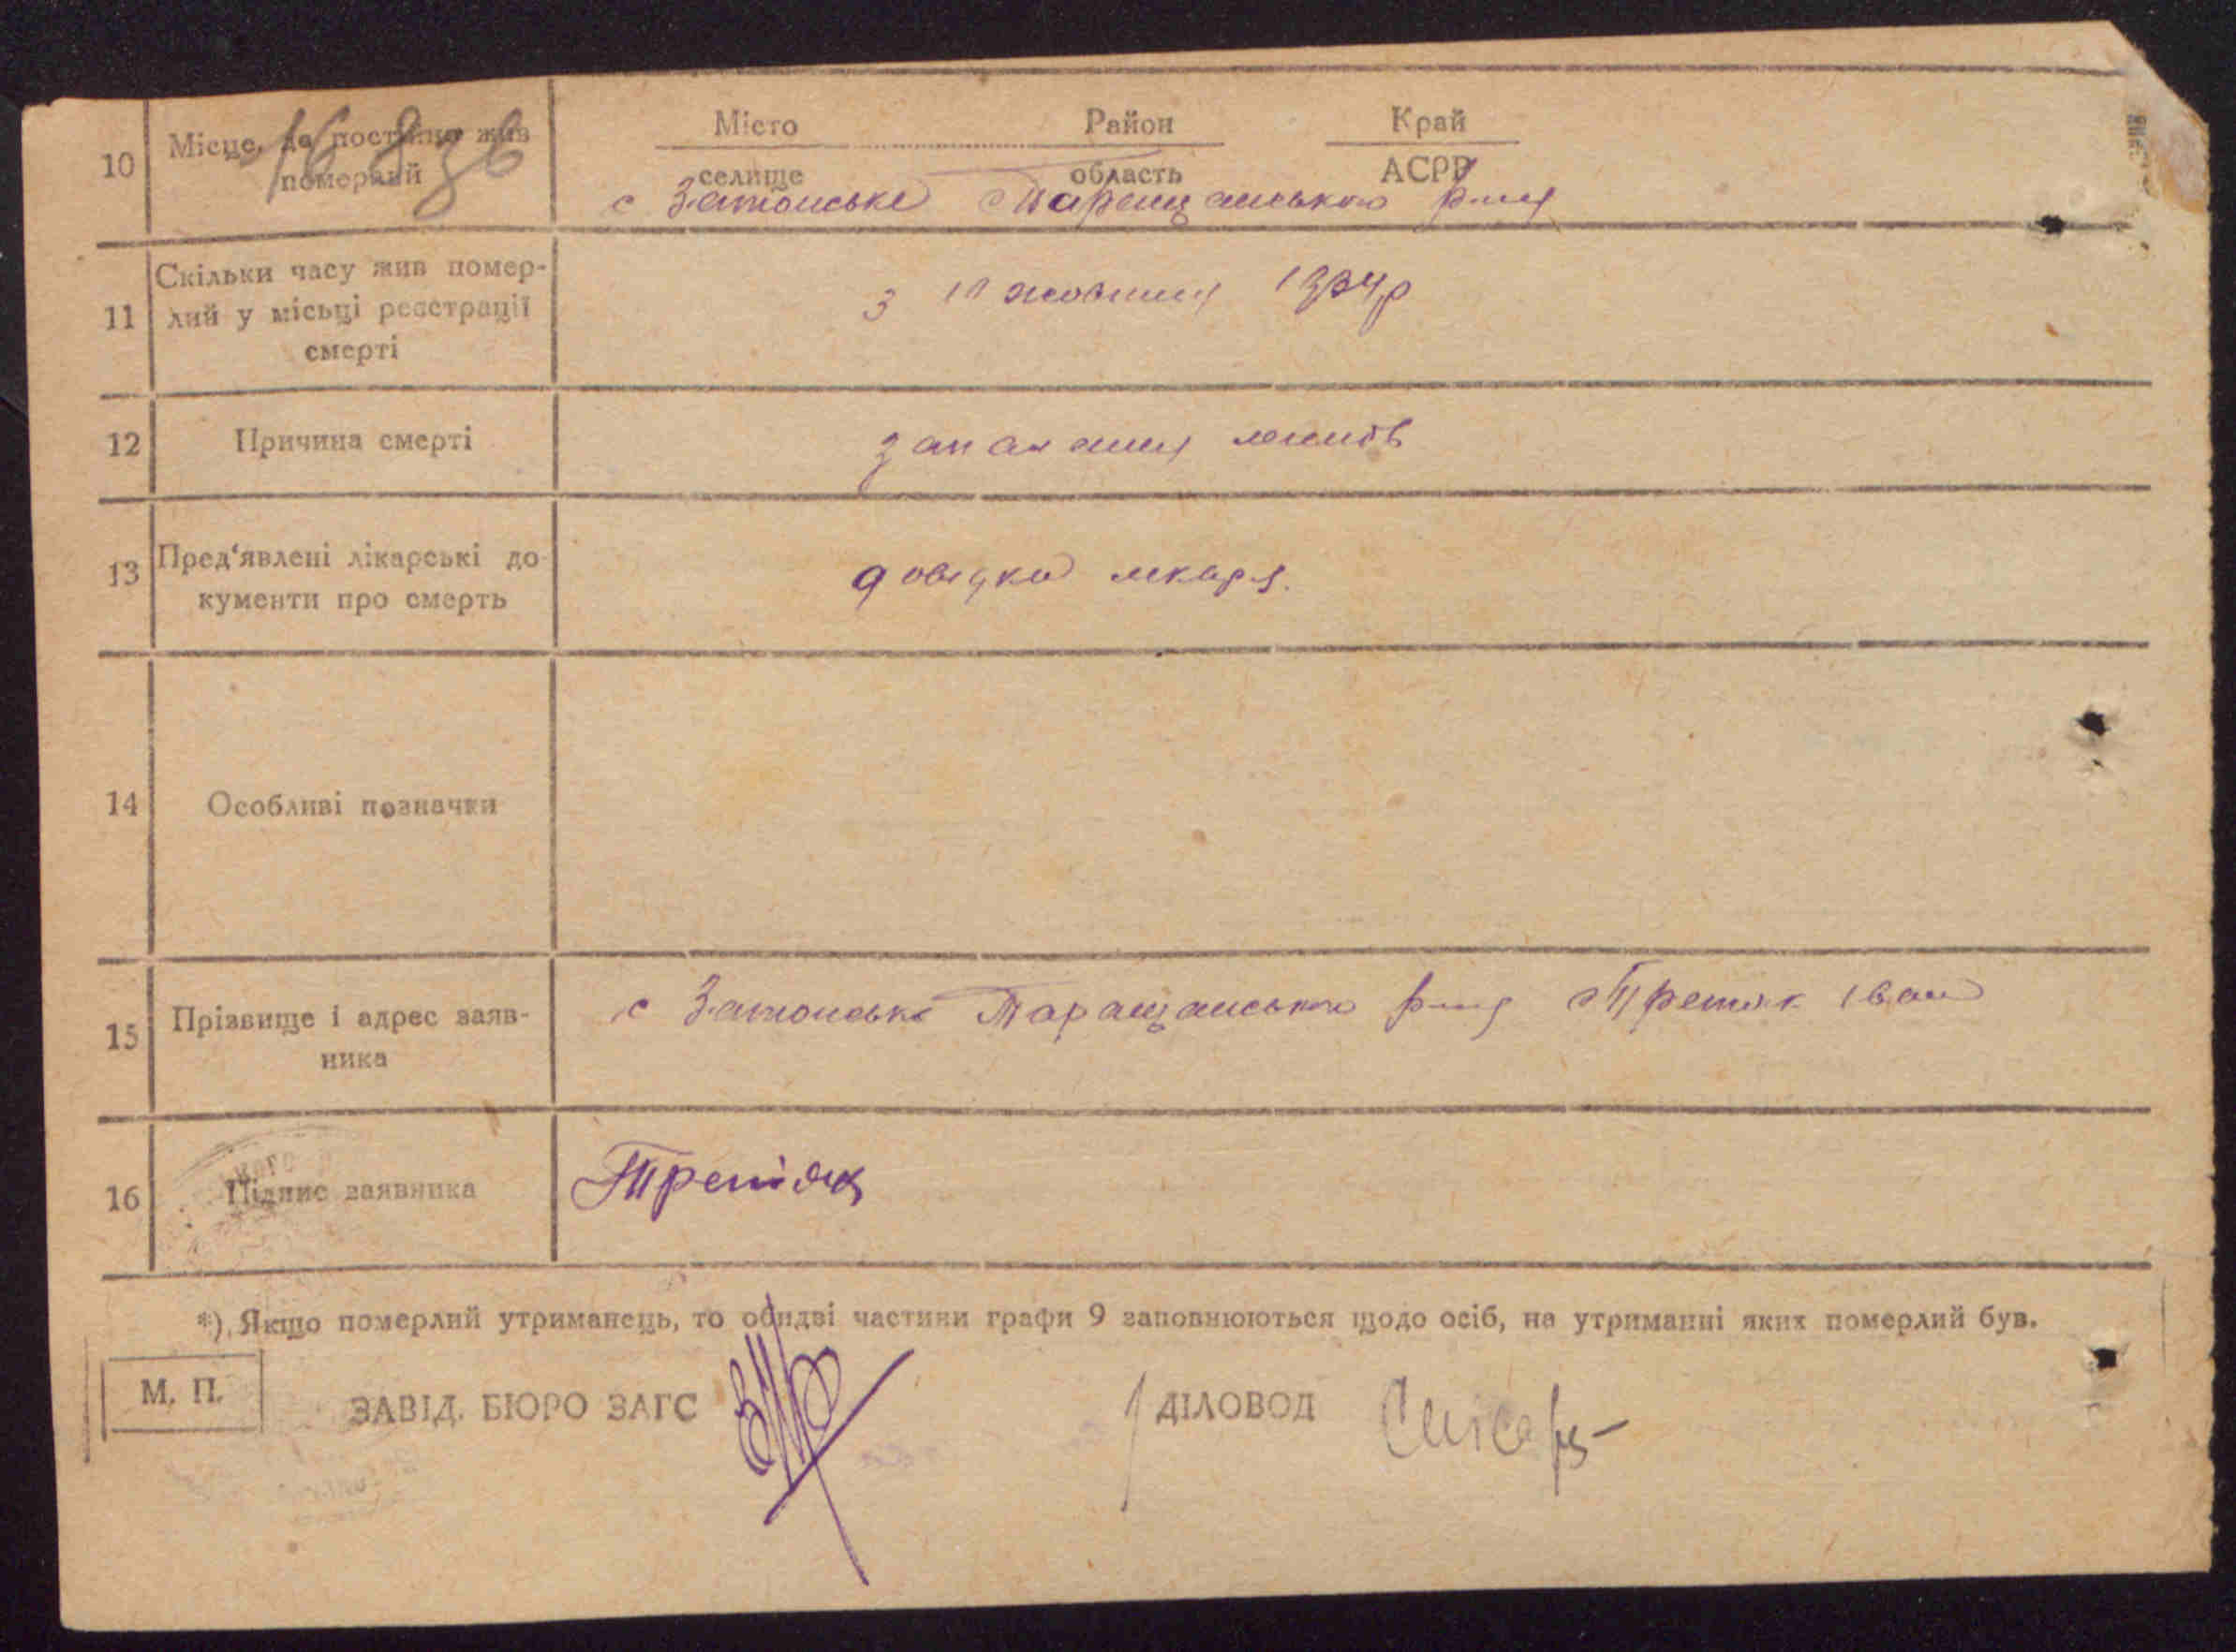 Місто Район Край
10 Місце, де постійно жив
померлий
селище область АСРР
с Затонське Таращанського р-ну
11 Скільки часу жив помер-
лий у місьці реєстрації
смерті
з 10 жовтня 1934р
12 Причина смерті
запалення легенів
13 Пред'явлені лікарські до-
кументи про смерть
довідка лікаря.
14 Особливі позначки
15 Прізвище і адрес заяв-
ника
с Затонське Таращанського р-ну Третяк Іван
16 Підпис заявника
Третяк
*) Якщо померлий утриманець, то обидві частини графи 9 заповнюються щодо осіб, на утриманні яких померлий був.
М. П.
ЗАВІД. БЮРО ЗАГС ДІЛОВОД